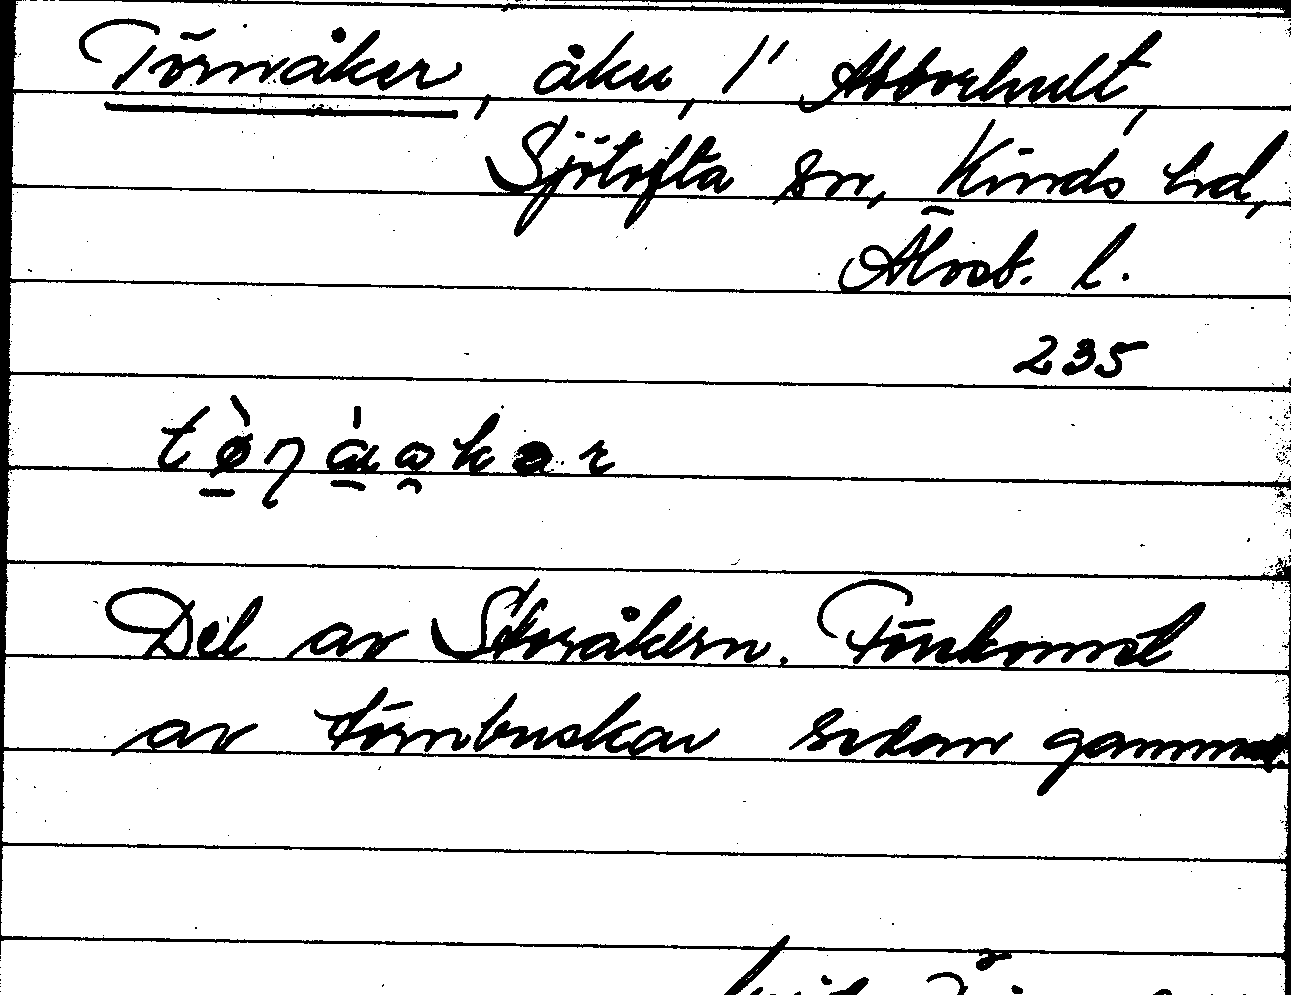 Törnåker, åker, 1" Abborhult,
Sjötofta sn, Kinds hd,
Älvsb. l.
235
Del av Storåkern. Förekomst
av törnbuskar sedan gammal.